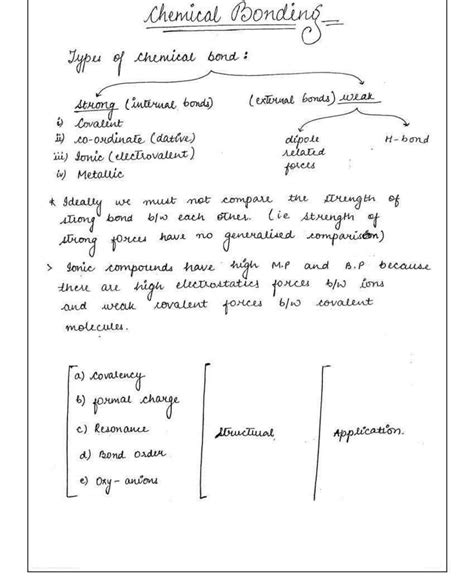 Chemical Bonding
Types of chemical bond :
Strong (internal bonds)
(external bonds) weak
i) Covalent
ii) co-ordinate (dative)
iii) Ionic (electrovalent)
iv) Metallic
dipole
related
forces
H-bond
* Ideally we must not compare the strength of
strong bond b/w each other. (ie strength of
strong forces have no generalised comparison)
> Ionic compounds have high M.P and B.P because
there are high electrostatics forces b/w ions
and weak covalent forces b/w covalent
molecules.
a) covalency
b) formal charge
c) Resonance
d) Bond order
e) Oxy-anions
Structural
Application.